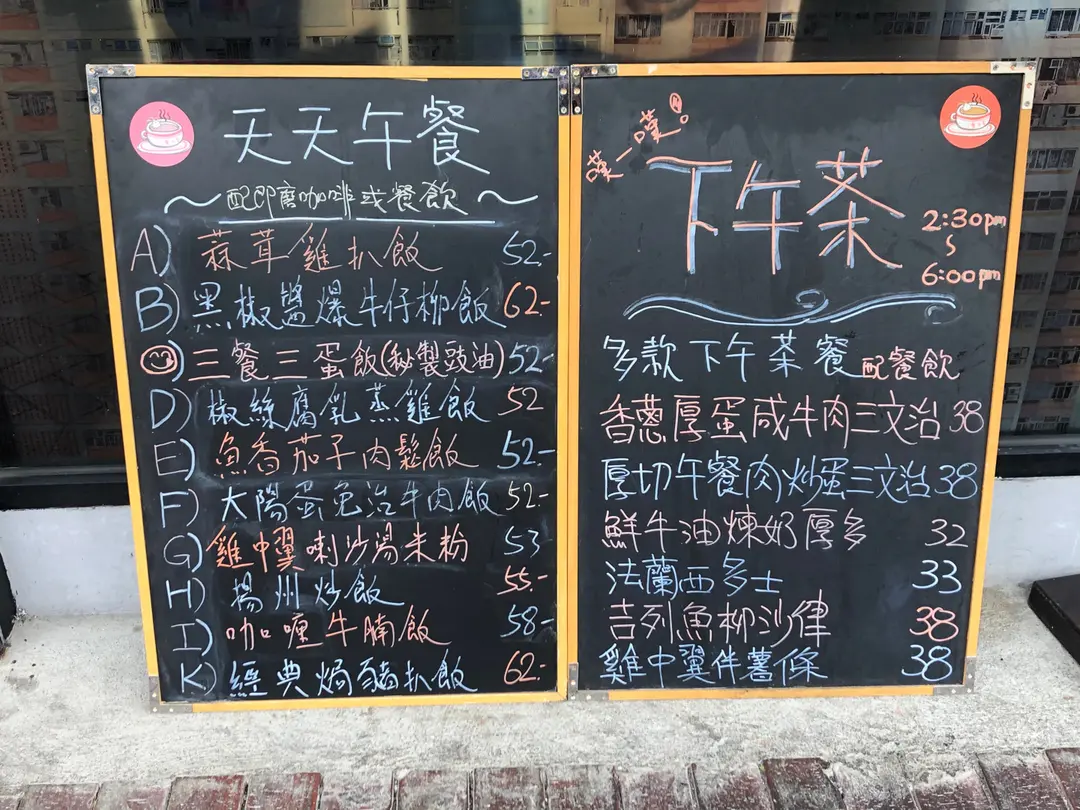 天天午餐
~配即磨咖啡或餐飲~
A) 蒜茸雞扒飯 52.-
B) 黑椒醬爆牛仔柳飯 62.-
) 三餐三蛋飯(秘製豉油) 52.-
D) 椒絲腐乳蒸雞飯 52
E) 魚香茄子肉鬆飯 52.-
F) 大陽蛋免治牛肉飯 52.-
G) 雞中翼喇沙湯米粉 53
H) 揚州炒飯 55.-
I) 咖喱牛腩飯 58.-
K) 經典焗豬扒飯 62.-
嘆一嘆。
下午茶
2:30pm
~
6:00pm
多款下午茶餐 配餐飲
香蔥厚蛋咸牛肉三文治 38
厚切午餐肉炒蛋三文治 38
鮮牛油煉奶厚多 32
法蘭西多士 33
吉列魚柳沙律 38
雞中翼伴薯條 38